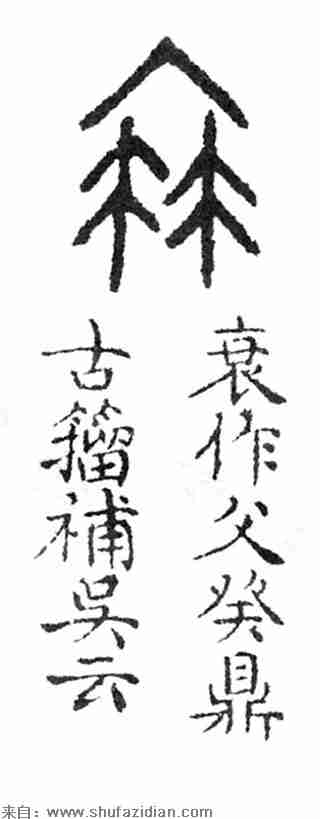 衰作父癸鼎
古籀補吳云
来自：www.shufazidian.com